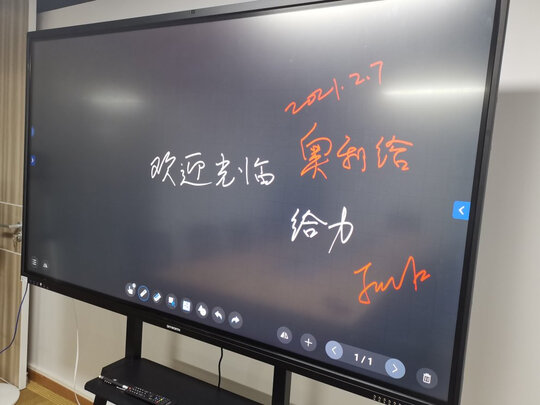 2021.2.7
欢迎光临 奥利给
给力
1/1